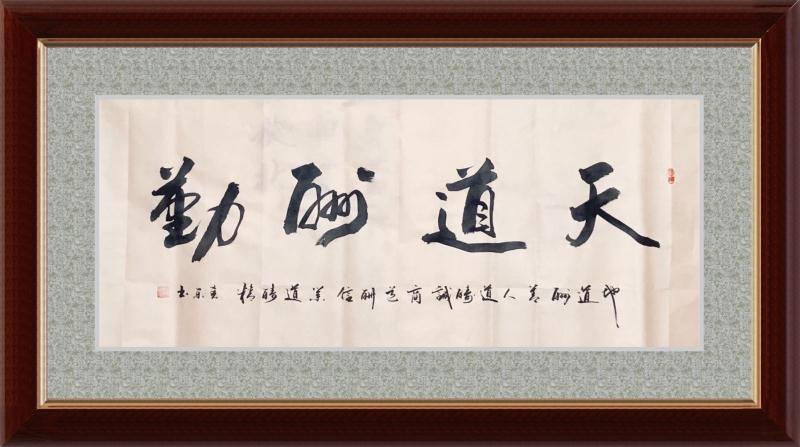 天道酬勤
地道酬善人道酬誠商道酬信業道酬精 書